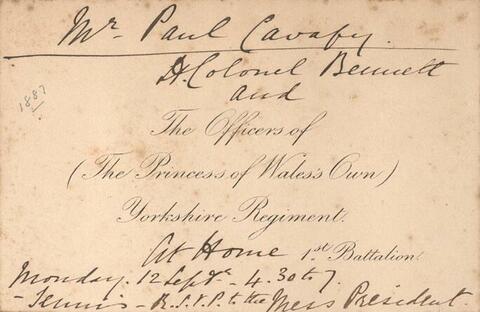 Mr. Paul Cavafy.
Lt. Colonel Bennett
and
1887
The Officers of
(The Princess of Wales's Own)
Yorkshire Regiment.
At Home 1st. Battalion.
Monday. 12 Septr. - 4.30 to 7.
- Tennis - R.S.V.P. to the Mess President.